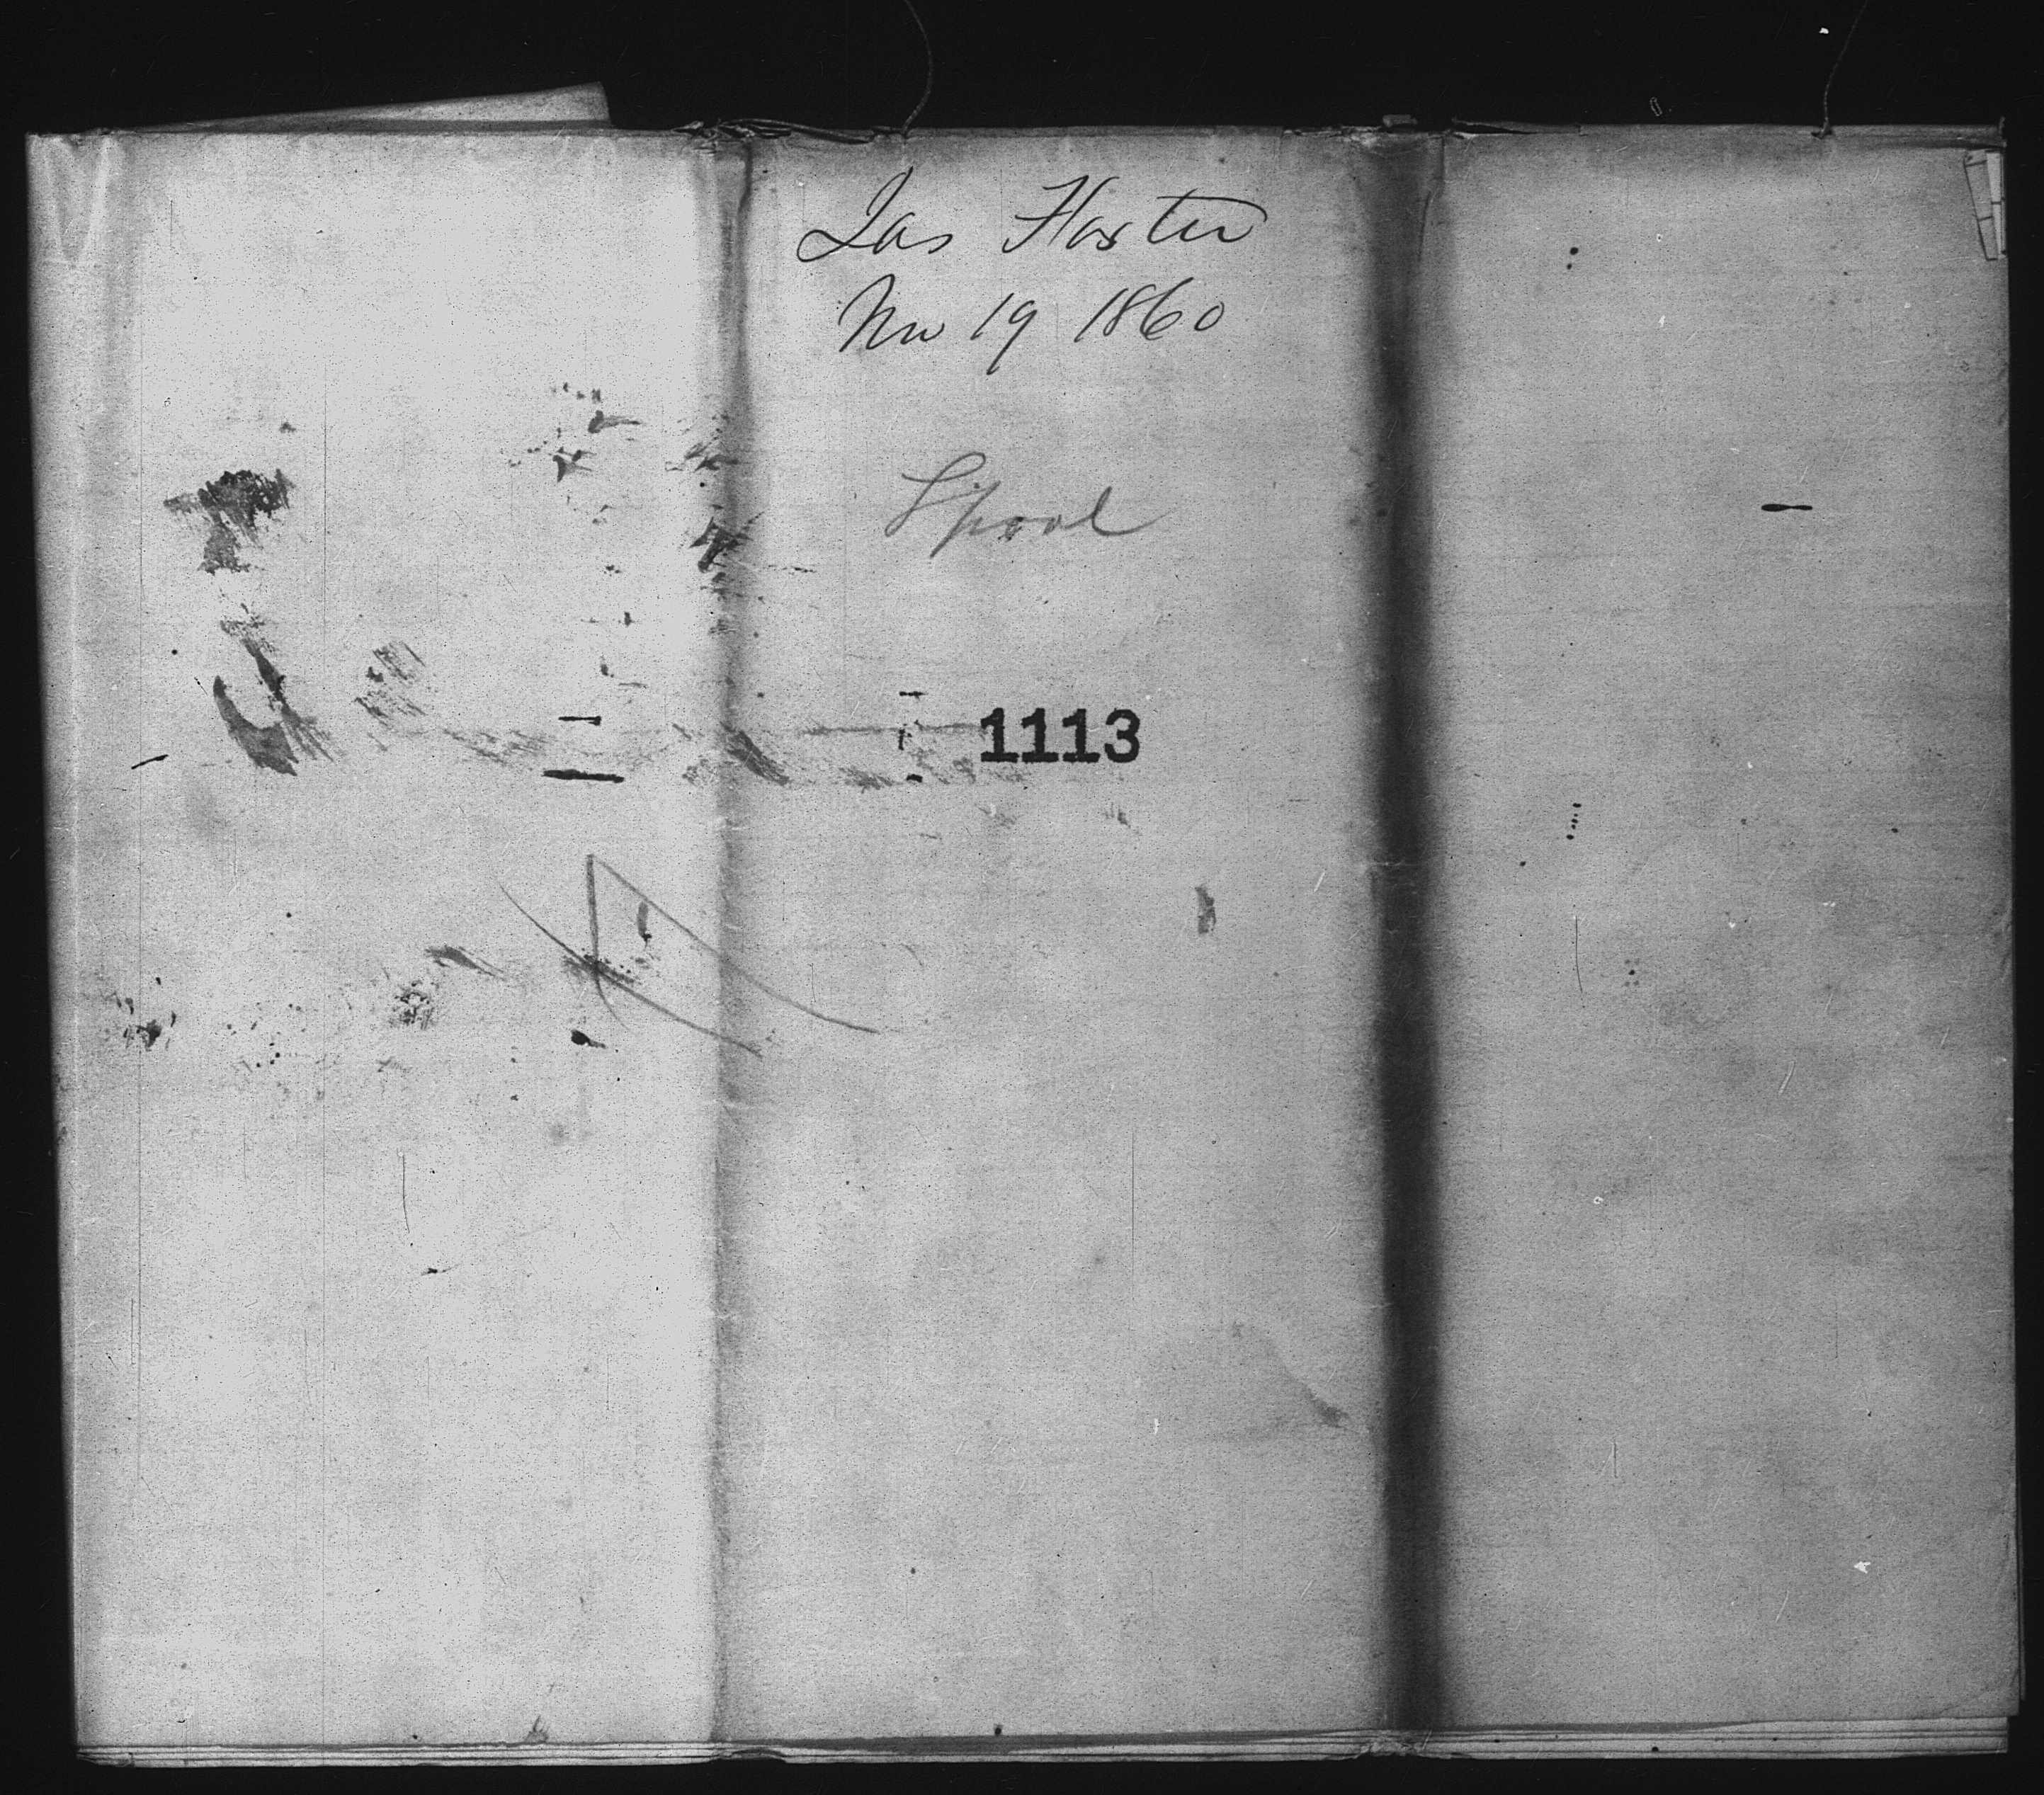 Jas Foster
Nov 19 1860
Spool
1113